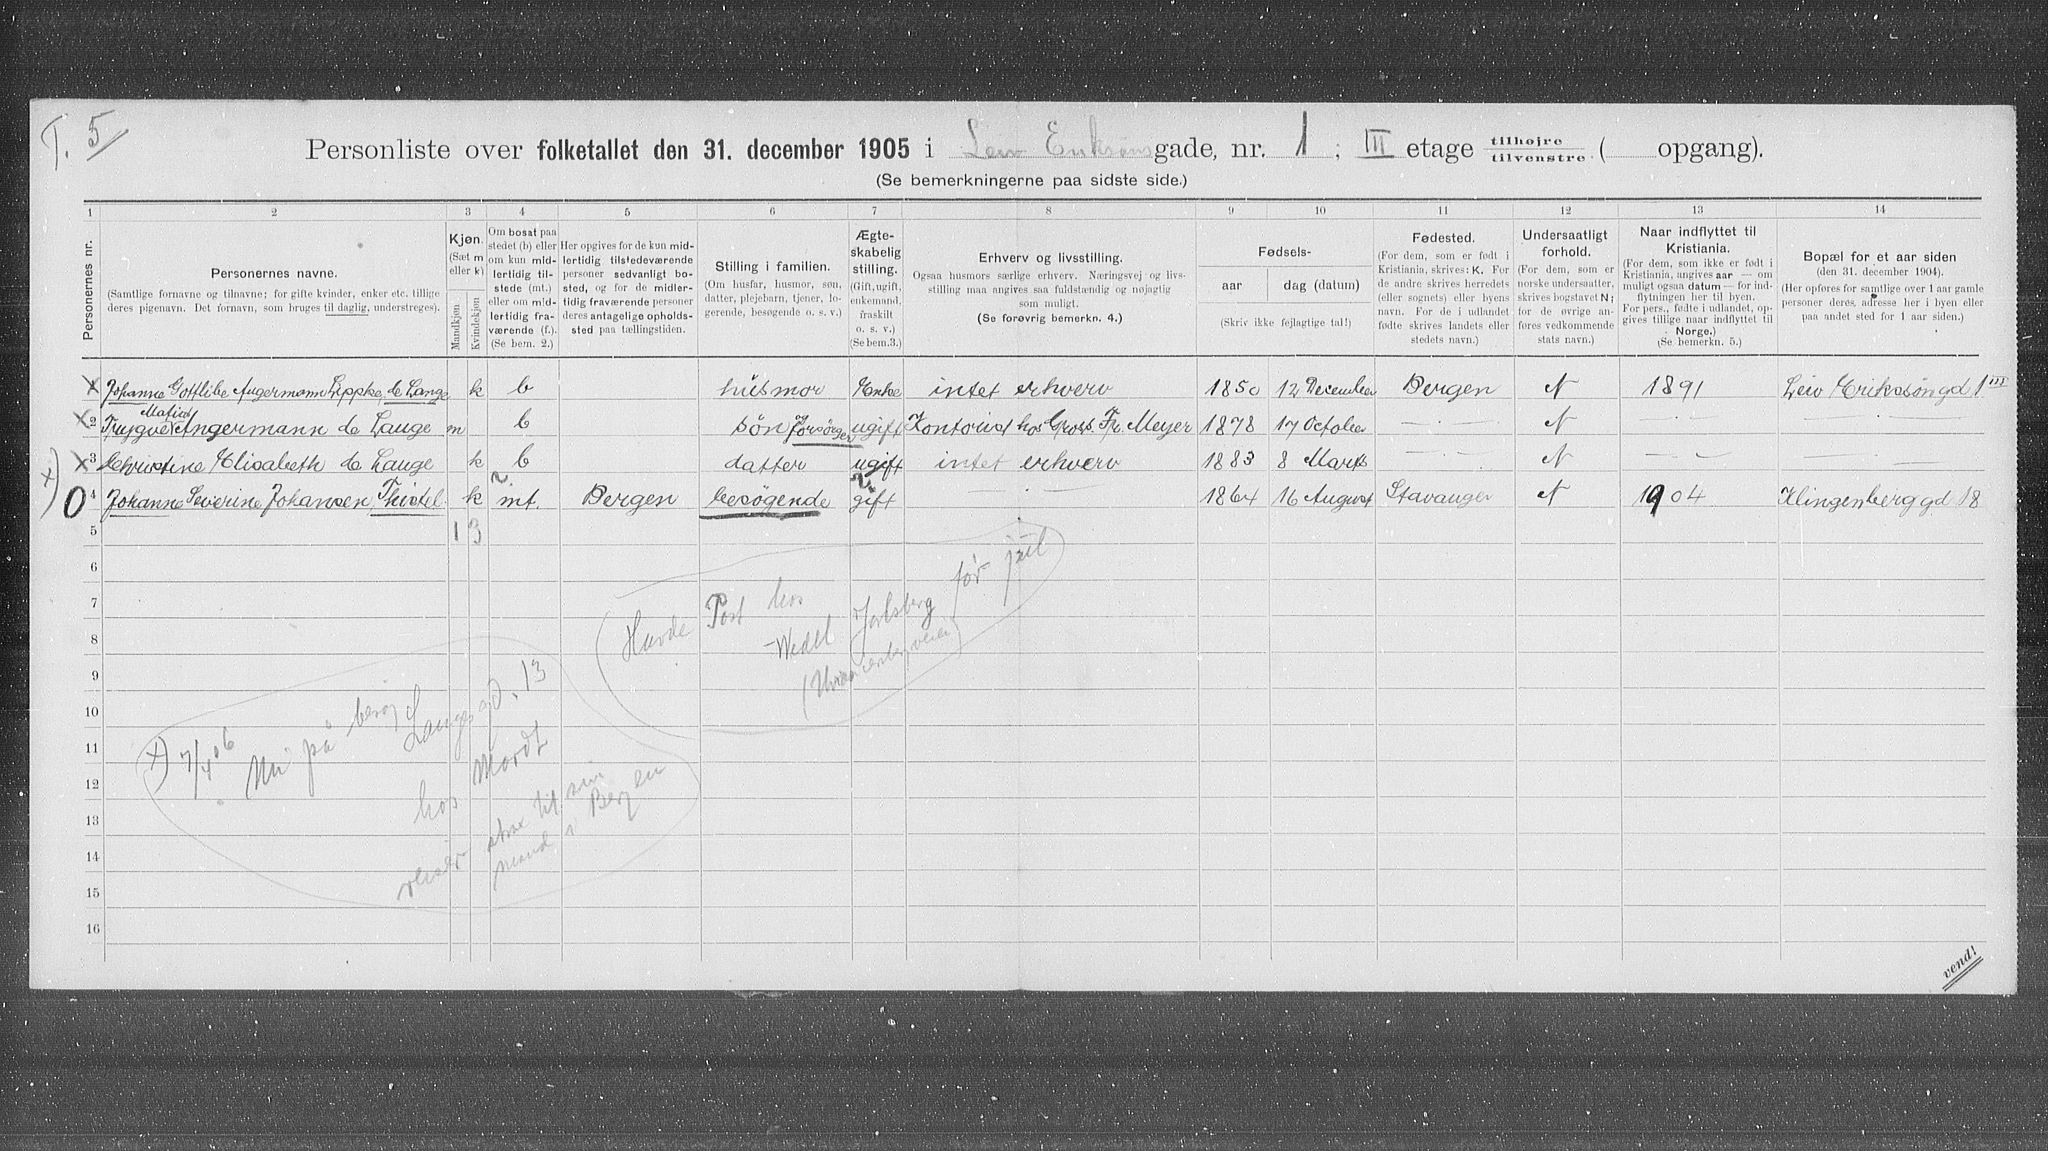 T. 5
Personliste over folketallet den 31. december 1905 i Leiv Eriksøns gade, nr. 1; III etage tilhøjre / tilvenstre ( opgang).
(Se bemerkningerne paa sidste side.)
1 2 3 4 5 6 7 8 9 10 11 12 13 14
Personernes nr.
Personernes navne.
(Samtlige fornavne og tilnavne; for gifte kvinder, enker etc. tillige
deres pigenavn. Det fornavn, som bruges til daglig, understreges).
Kjøn.
(Sæt m
eller k)
Mandkjøn
Kvindekjøn
Om bosat paa
stedet (b) eller
om kun mid-
lertidig til-
stede (mt.)
eller om mid-
lertidig fra-
værende (f.).
(Se bem. 2.)
Her opgives for de kun mid-
lertidig tilstedeværende
personer sedvanlig bo-
sted, og for de midler-
tidig fraværende personer
deres antagelige opholds-
sted paa tællingstiden.
Stilling i familien.
(Om husfar, husmor, søn,
datter, plejebarn, tjener, lo-
gerende, besøgende o. s. v.)
Ægte-
skabelig
stilling.
(Gift, ugift,
enkemand,
fraskilt
o. s. v.)
(Se bem.3.)
Erhverv og livsstilling.
Ogsaa husmors særlige erhverv. Næringsvej og livs-
stilling maa angives saa fuldstændig og nøjagtig
som muligt.
(Se forøvrig bemerkn. 4.)
Fødsels-
aar dag (datum)
(Skriv ikke fejlagtige tal!)
Fødested.
(For dem, som er født i
Kristiania, skrives: K. For
de andre skrives herredets
(eller sognets) eller byens
navn. For de i udlandet
fødte skrives landets eller
stedets navn.)
Undersaatligt
forhold.
(For dem, som er
norske undersaatter,
skrives bogstavet N;
for de øvrige an-
føres vedkommende
stats navn.)
Naar indflyttet til
Kristiania.
(For dem, som ikke er født i
Kristiania, angives aar — om
muligt ogsaa datum — for ind-
flytningen her til byen.
For pers., fødte i udlandet, op-
gives tillige naar indflyttet til
Norge.)
(Se bemerkn. 5.)
Bopæl for et aar siden
(den 31. december 1904).
(Her opføres for samtlige over 1 aar gamle
personer deres adresse her i byen eller
paa andet sted for 1 aar siden.)
1 Johanne Gottlibe Angermann Lippke, de Lange k b husmor Enke intet erhverv 1850 12 December Bergen N 1891 Leiv Eriksøngd 1 III
Matias
2 Trygve Angermann de Lange m b søn forsørger ugift Kontorist hos Gross. Fr. Meyer 1878 17 October — · — N — · — — · —
3 Christine Elisabeth de Lange k b datter ugift intet erhverv 1883 8 Marts — · — N — · — — · —
x) 0 4 Johanne Severine Johansen Thistel k mt. Bergen besøgende gift — · — 1864 16 August Stavanger N 1904 Klingenberggd 18
5 1 3
6
7
8
9
10
11
12
13
14
15
16
Havde Post hos
Wedel Jarlsberg før jul
x) 7/4 06
Nu på besøg
Langesgd. 13
hos Mordt
reiser strax til sin
mand i Bergen
vend!